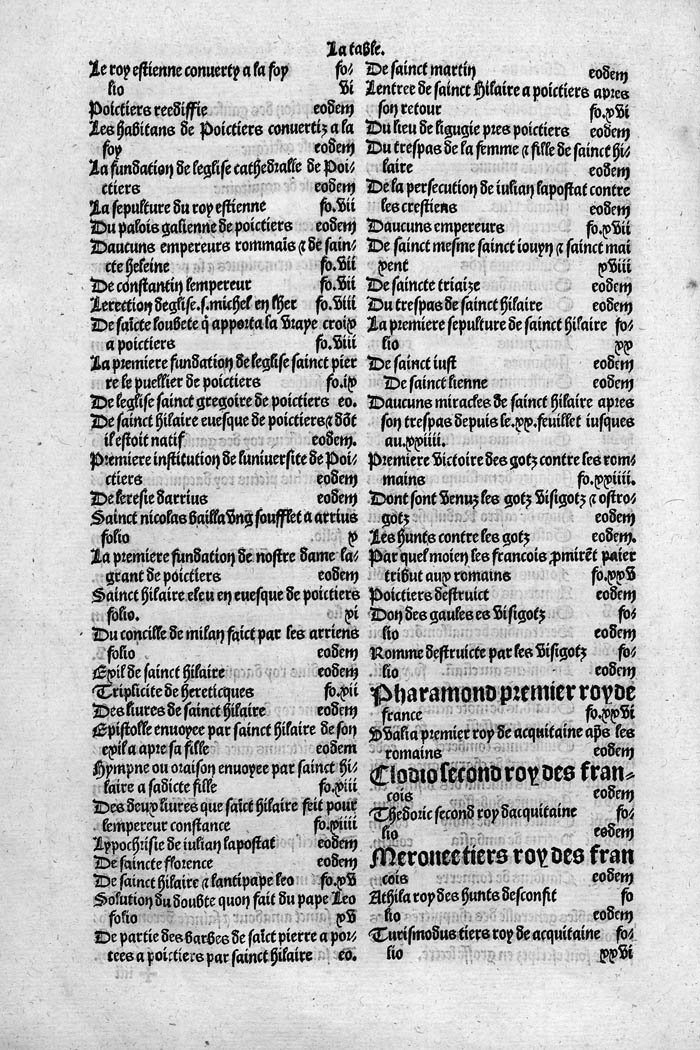 La table.
Le roy estienne conuerty a la foy fo-
lio vi
Poictiers reediffie eodem
Les habitans de Poictiers conuertiz a la
foy eodem
La fundation de leglise cathedralle de Poi-
ctiers eodem
La sepulture du roy estienne fo.vii
Du palois galienne de poictiers eodem
Daucuns empereurs rommais ⁊ de sain-
cte heleine fo.vii
De constantin lempereur fo.vii
Lerection deglise.s.michel en lher fo.viii
De saīcte loubete q̄ apporta la vraye croix
a poictiers fo.viii
La premiere fundation de leglise sainct pier
re le puellier de poictiers fo.ix
De leglise sainct gregoire de poictiers eo.
De sainct hilaire euesque de poictiers⁊ dōt
il estoit natif eodem.
Premiere institution de luniuersite de Poi-
ctiers eodem
De leresie darrius eodem
Sainct nicolas bailla vng soufflet a arrius
folio x
La premiere fundation de nostre dame la-
grant de poictiers eodem
Sainct hilaire eleu en euesque de poictiers
folio. xi
Du concille de milan faict par les arriens
folio eodem
Exil de sainct hilaire eodem
Triplicite de hereticques fo.xii
Des liures de sainct hilaire eodem
Epistolle enuoyee par sainct hilaire de son
exil a apre sa fille eodem
Hympne ou oraison enuoyee par sainct hi-
laire a sadicte fille fo.xiii
Des deux liures que saīct hilaire feit pour
lempereur constance fo.xiiii
Lypochrisie de iulian lapostat eodem
De saincte florence eodem
De sainct hilaire ⁊ lantipape leo fo.xv
Solution du doubte quon fait du pape Leo
folio xv
De partie des barbes de saīct pierre a por-
tees a poictiers par sainct hilaire eo.
De sainct martin eodem
Lentree de sainct hilaire a poictiers apres
son retour fo.xvi
Du lieu de ligugie pres poictiers eodem
Du trespas de la femme ⁊ fille de sainct hi-
laire eodem
De la persecution de iulian lapostat contre
les crestiens eodem
Daucuns empereurs fo.xvii
De sainct mesme sainct iouyn ⁊ sainct mai
xent xviii
De saincte triaize eodem
Du trespas de sainct hilaire eodem
La premiere sepulture de sainct hilaire fo-
lio xx
De sainct iust eodem
De sainct lienne eodem
Daucuns miracles de sainct hilaire apres
son trespas depuis le.xx.feuillet iusques
au.xxiiii.
Premiere victoire des gotz contre les rom-
mains fo.xxiiii.
Dont sont venuz les gotz visigotz ⁊ ostro-
gotz eodem
Les hunts contre les gotz eodem.
Par quel moien les francois ꝓmirēt paier
tribut aux romains fo.xxv
Poictiers destruict eodem
Don des gaules es visigotz fo-
lio eodem
Romme destruicte par les visigotz fo-
lio eodem
Pharamond premier roy de
france fo.xxvi
Vvalia premier roy de acquitaine ap̄s les
romains eodem
Clodio second roy des fran-
cois eodem
Thedoric second roy dacquitaine fo-
lio eodem
Merouee tiers roy des fran
cois eodem
Athila roy des hunts desconfit fo
lio eodem
Turismodus tiers roy de acquitaine fo-
lio xxvi